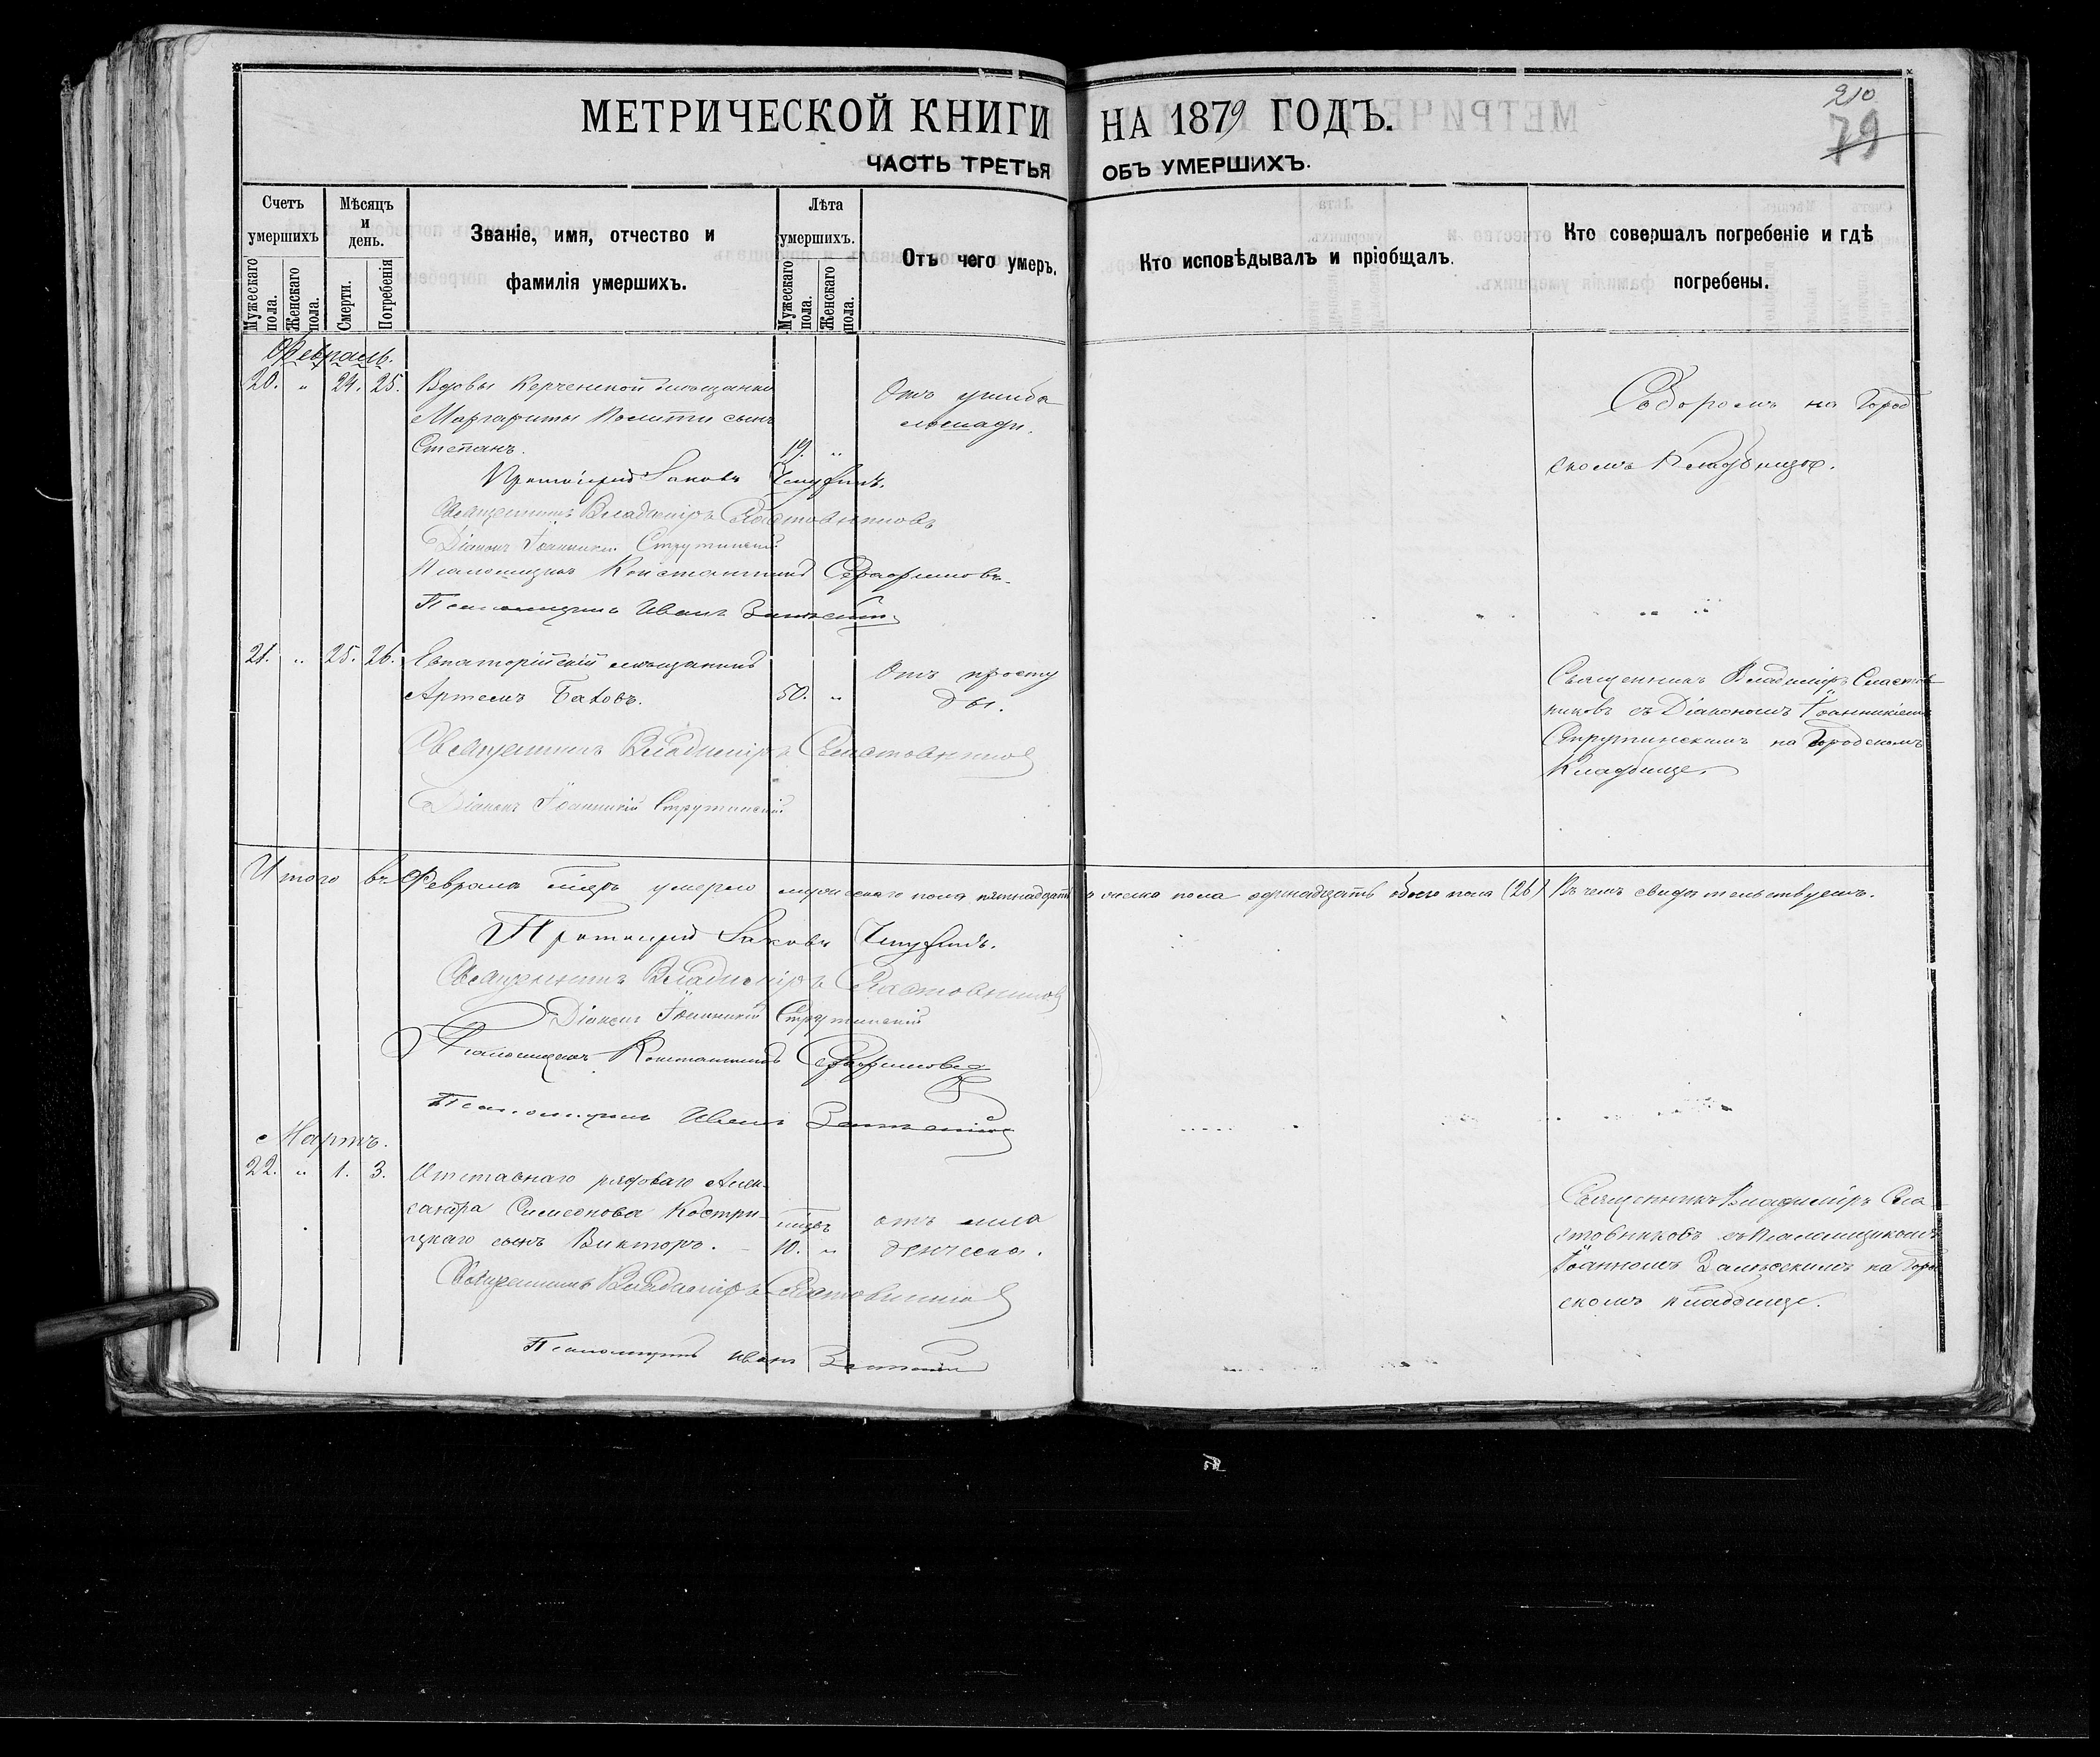 МЕТРИЧЕСКОЙ КНИГИ НА 1879 ГОДЪ.
210
79
ЧАСТЬ ТРЕТЬЯ ОБЪ УМЕРШИХЪ.
Счетъ умершихъ
Мужескаго пола.
Женскаго пола.
Мѣсяцъ и день.
Смерти.
Погребенія
Званіе, имя, отчество и
фамилія умершихъ.
Лѣта умершихъ.
Мужескаго пола.
Женскаго пола.
Отъ чего умеръ.
Кто исповѣдывалъ и пріобщалъ.
Кто совершалъ погребеніе и гдѣ
погребены.
Февраль.
20. " 24. 25. Вдовы Керченской мѣщанки
Маргариты Политти сынъ
Степанъ. 19. "
Отъ ушиба
лошади.
Соборомъ на Город
скомъ Кладбищѣ.
Протоіерей Іаковъ
Священникъ Владиміръ Сластовниковъ
Діаконъ Іоанникій Струтинскій
Псаломщикъ Константинъ Серафимовъ
Псаломщикъ Иванъ
21. " 25. 26. Евпаторійскій мѣщанинъ
Артемъ 50. "
Отъ просту
ды.
Священникъ Владиміръ Сластов
никовъ съ Діакономъ Іоанникіемъ
Струтинскимъ на Городскомъ
Кладбище.
Священникъ Владиміръ Сластовниковъ
Діаконъ Іоанникій Струтинскій
Итого въ Февралѣ умерло мужескаго пола пятнадцать а женска пола одинадцать обоего пола (26) Въ чемъ свидѣтельствуемъ.
Протоіерей Іаковъ
Священникъ Владиміръ Сластовниковъ
Діаконъ Іоанникій Струтинскій
Псаломщикъ Константинъ Серафимовъ
Псаломщикъ Иванъ
Мартъ.
22. " 1. 3. Отставнаго рядоваго Алек
сандра Симеонова Костри
цкаго сынъ Викторъ. 10. "
отъ мла
денческа.
Священникъ Владиміръ Сла
стовниковъ съ Псаломщикомъ
Іоанномъ Залѣсскимъ на Город
скомъ кладбище.
Священникъ Владиміръ Сластовниковъ
Псаломщикъ Иванъ